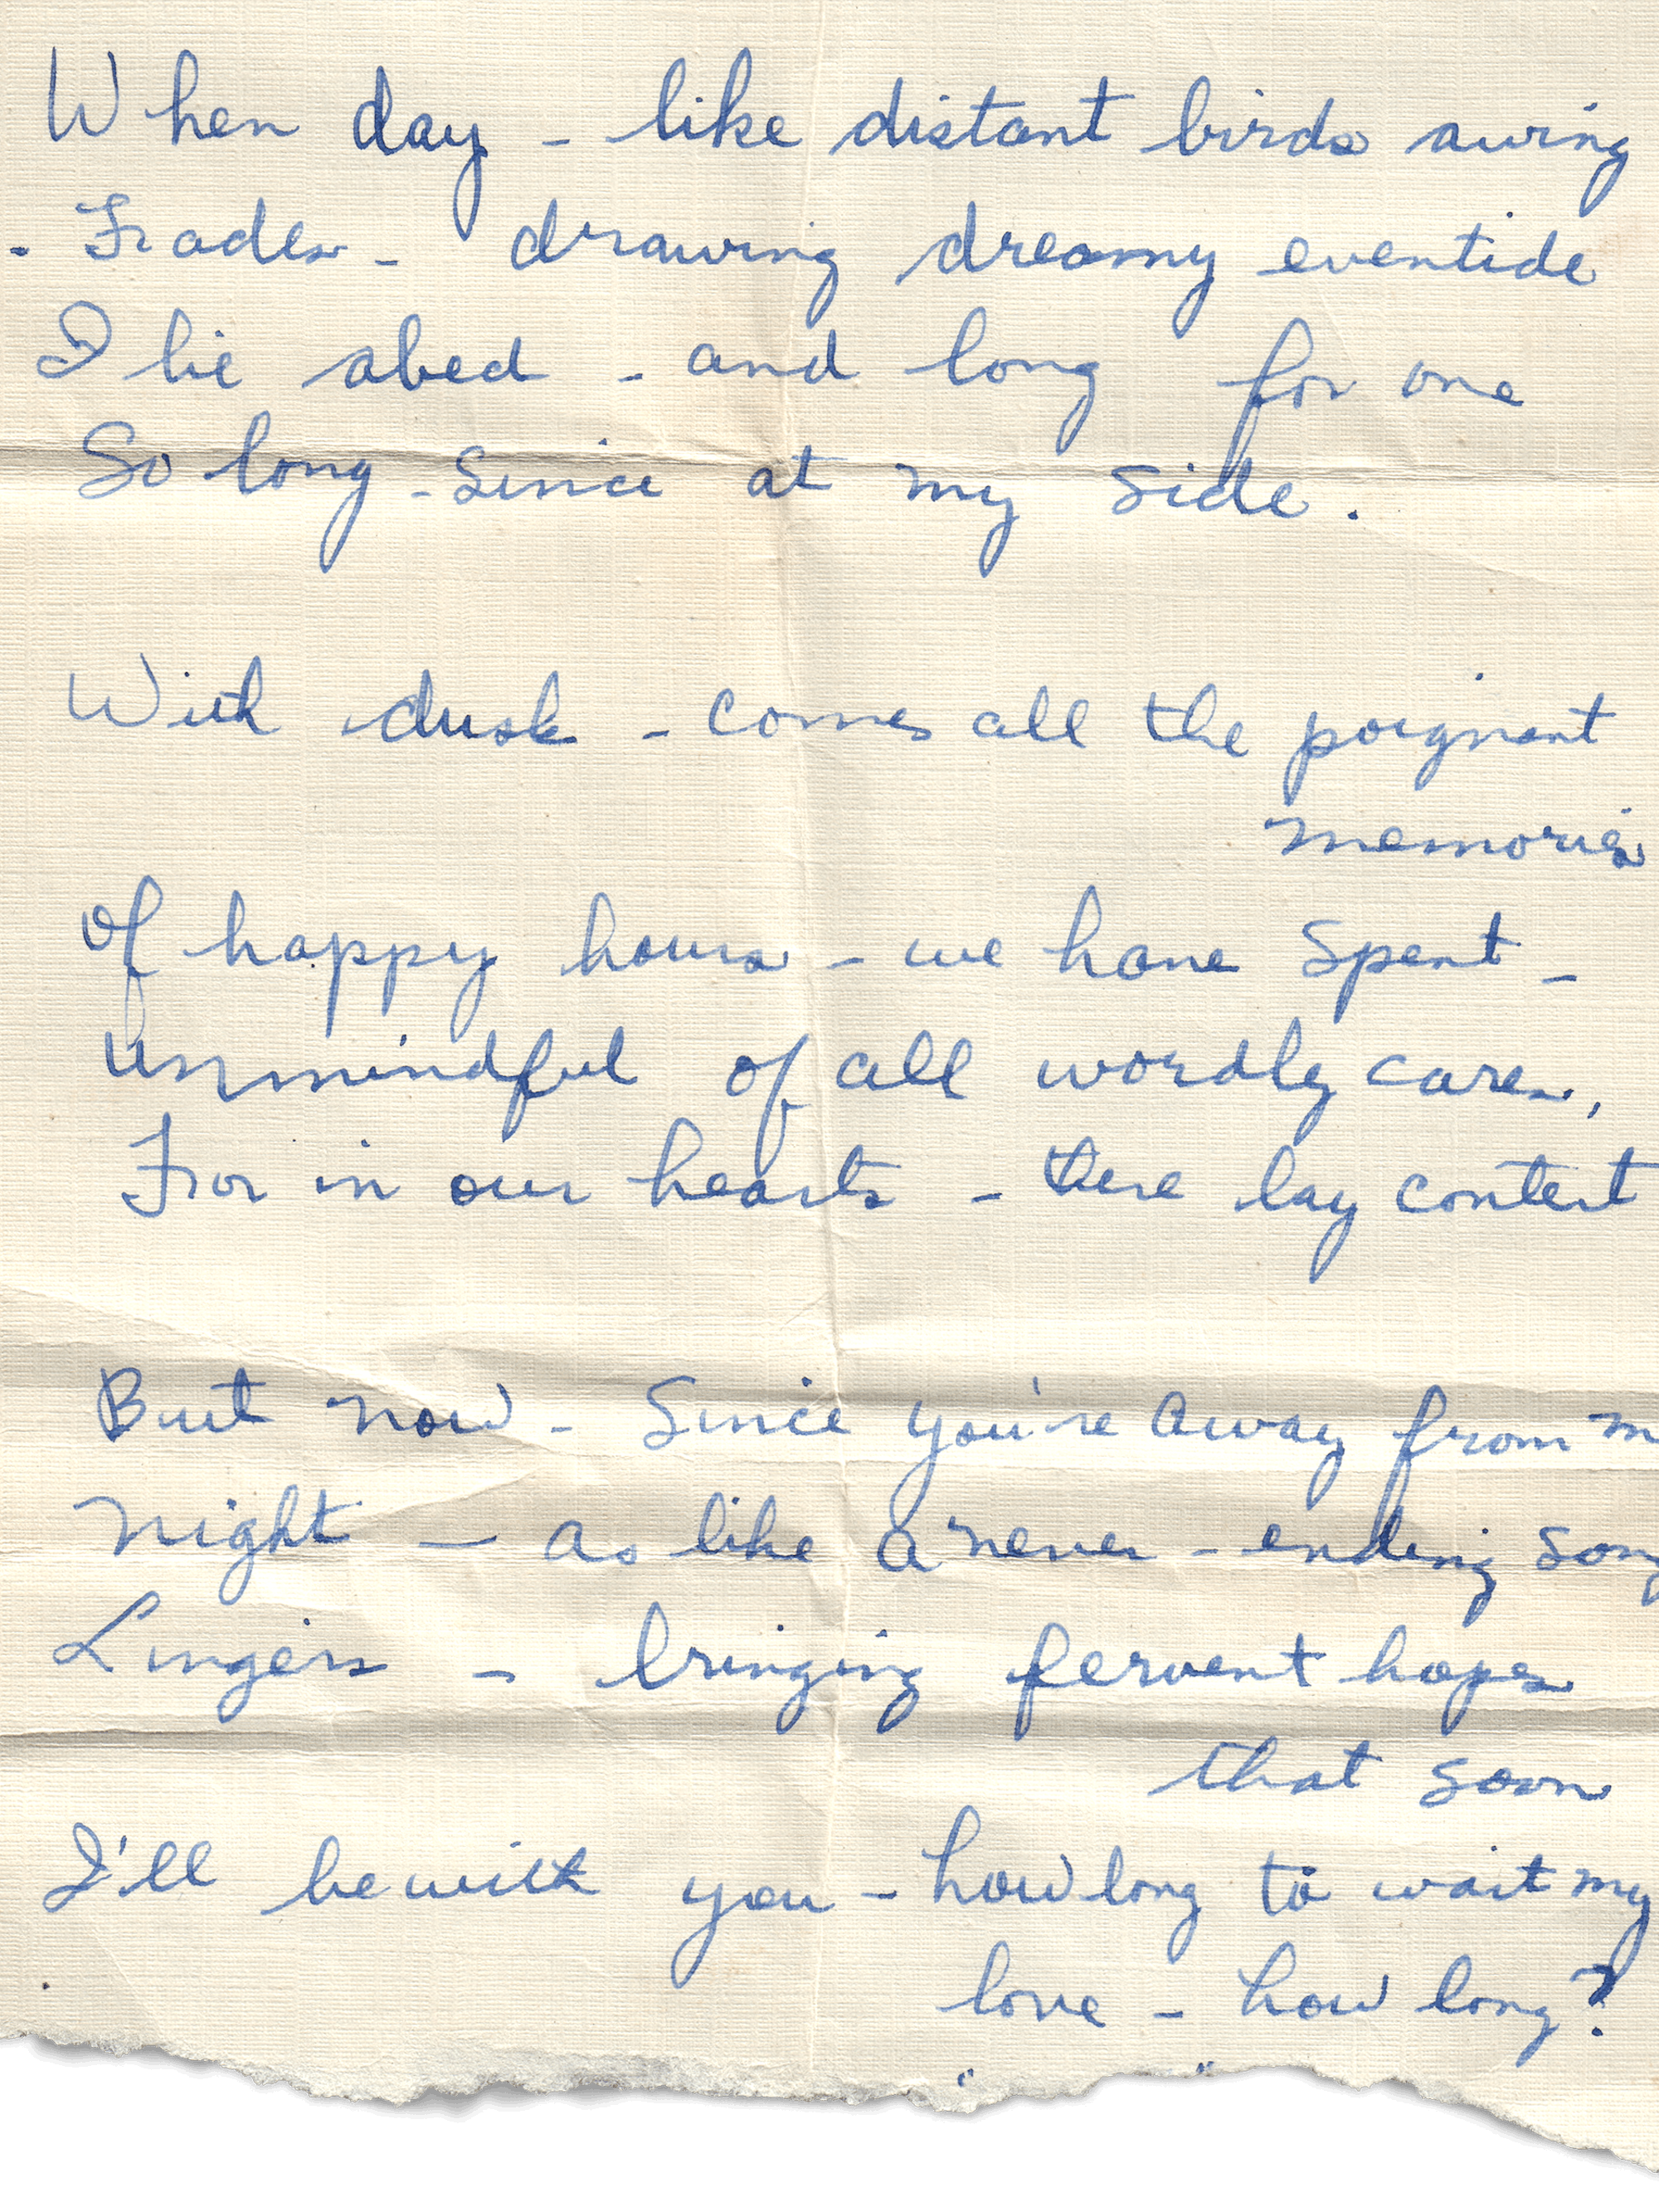 When day - like distant birds awing
- Fades - drawing dreamy eventide
I lie abed - and long for one
So long - since at my side.
With dusk - comes all the poignant
memories
Of happy hours - we have spent -
Unmindful of all wordly cares,
For in our hearts - there lay content
But now - since you're away from m
Night - as like a never - ending song
Lingers - bringing fervent hopes
that soon
I'll be with you - how long to wait my
love - how long?